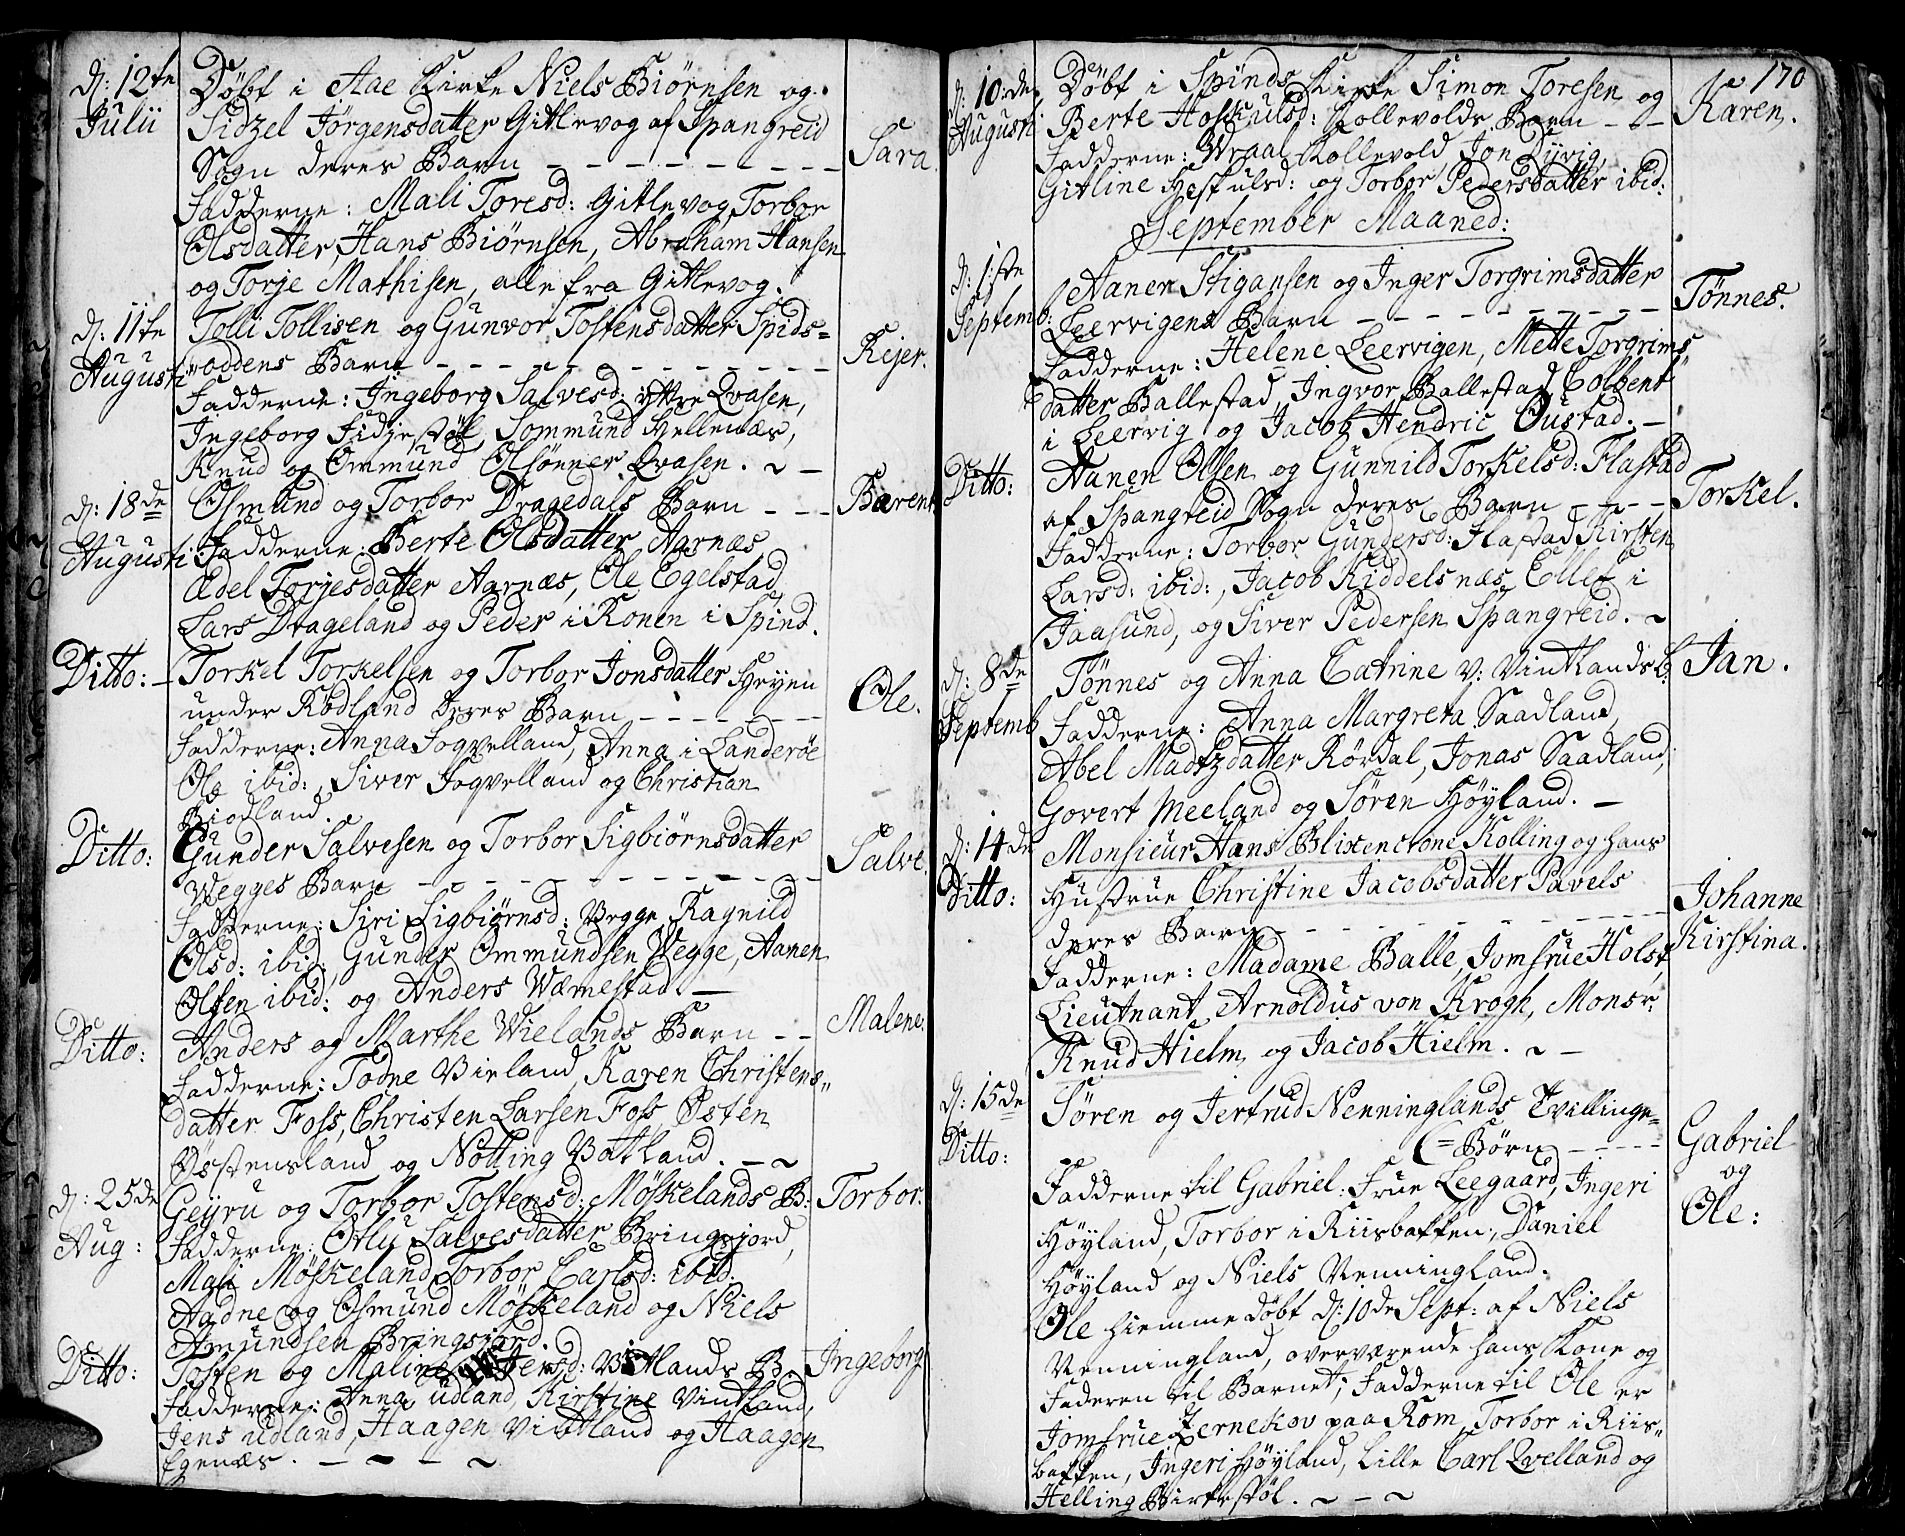 d: 12te Julii
Döbt i Aae Kirke Niels Biörnsen og
Sidzel Jörgensdatter Gitlevog af Spangreid
Sogn deres Barn — Sara.
Fadderne: Mali Toresd: Gitlevog, Torbor
Olsdatter, Hans Biörnsen, Abraham Hansen
og Torje Mathisen, alle fra Gitlevog.
d: 11te Augusti
Tolli Tollisen og Gunvor Tostensdatter Spids=
oddens Barn — Rejer.
Fadderne: Ingeborg Salvesd: yttre Qvasen,
Ingeborg Fidjestöl, Sommund Hellenæs,
Knud og Ommund Olsönner Qvasen. ~ —
d: 18de Augusti
Osmund og Torbor Dragedals Barn — Barent
Fadderne: Berte Olsdatter Aarnæs,
Ædel Torjesdatter Aarnæs, Ole Egelstad,
Lars Drageland og Peder i Ronen i Spind.
Ditto: —
Torkel Torkelsen og Torbor Jonsdatter Heyen
under Rödland deres Barn — Ole.
Fadderne: Anna Foqvelland, Anna i Landeröe
Ole ibid:, Siver Foqvelland og Christian
Biodland.
Ditto:
Gunder Salvesen og Torbor Sigbiörnsdatter
Wegges Barn — Salve.
Fadderne: Siri Sigbiörnsd: Vegge, Ragnild
Olsd: ibid: Gunder Ommundsen Vegge, Aanen
Olsen ibid: og Anders Wæmestad. —
Ditto:
Anders og Marthe Wielands Barn — Malene.
Fadderne: Todne Vieland, Karen Christens"
datter Foss, Christen Larsen Foss, Østen
Østensland og Nötting Vatland. — ~
d: 25de Aug:
Geyru og Torbor Tostensd: Möskelands B: Torbor.
Fadderne: Otlu Salvesdatter Bringsjord,
Mali Möskeland, Torbor Carlsd: ibid.
Aadne og Osmund Möskeland og Niels
Amundsen Bringsjord.
Ditto:
Tosten og Maline Vitlands B. Ingeborg
Fadderne: Anna Udland, Kirstine Vintland,
Jens Udland, Haagen Vintland og Haagen
Egenæs. — ~ — ~
170
d: 10:de Augusti
Döbt i Spinds Kirke Simon Toresen og
Berte Hoskulsd: Kollevolds Barn — Karen.
Fadderne: Wraal Kollevold, Jon Dyvig,
Gitline Hoskulsd: og Torbor Pedersdatter ibid:
September Maaned:
d: 1:ste Septemb:
Aanen Stigansen og Inger Torgrimsdatter
Leervigens Barn — Tönnes.
Fadderne: Helene Leervigen, Mette Torgrims"
datter Ballestad, Ingvor Ballestad, Colbent
i Leervig og Jacob Hendric Oustad. —
Ditto:
Aanen Olsen og Gunnild Torkelsd: Flastad
af Spangreid Sogn deres Barn — Torkel.
Fadderne: Torbor Gundersd: Flastad, Kirsten
Larsd: ibid:, Jacob Kiddelsnæs, Ellef i
Jaasund, og Siver Pedersen Spangreid. ~
d: 8de Septemb
Tönnes og Anna Catrine v: Vintlands B. Jan.
Fadderne: Anna Margreta Saadland,
Abel Madtzdatter Rördal, Jonas Saadland,
Govert Meeland og Sören Höyland. —
d: 14de Ditto:
Monsieur Hans Blixencrone Kolling og hans
Hustrue Christine Jacobsdatter Pavels
deres Barn — Johanne Kirstina.
Fadderne: Madame Balle, Jomfrue Holst,
Lieutnant Arnoldus von Krogh, Monsr:
Knud Hielm, og Jacob Hielm. ~ —
d: 15de Ditto:
Sören og Jertrud Nenninglands Tvillinge=
=Börn — Gabriel og Ole:
Fadderne til Gabriel: Frue Leegaard, Ingeri
Höyland, Torbor i Riisbakken, Daniel
Höyland og Niels Venningland.
Ole hiemme döbt d: 10de Sept: af Niels
Venningland, overværende hans Kone og
Faderen til Barnet; Fadderne til Ole er
Jomfrue Zernekov paa Rom, Torbor i Riis"
bakken, Ingeri Höyland, Lille Carl Qvelland og
Helling Birkestöl. ~ — ~